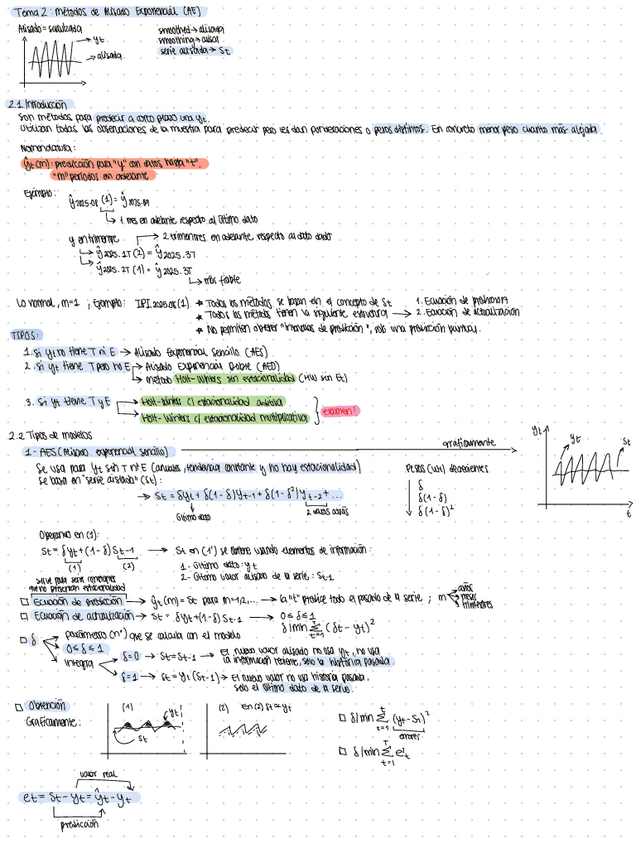 Tema 2: Métodos de Alisado Exponencial (AE)
Alisado = suavizado
smoothed → alisado
smoothing → alisar
serie alisada → St
yt
alisada
2.1. Introducción
Son métodos para predecir a corto plazo una yt.
Utilizan todas las observaciones de la muestra para predecir pero les dan ponderaciones o pesos distintos. En concreto menor peso cuanto más alejada.
Nomenclatura:
ŷt(m): predicción para "y" con datos hasta "t".
"m" períodos en adelante
Ejemplo:
ŷ2025.08 (1) = ŷ2025.09
1 mes en adelante respecto al último dato
y en trimestre
2 trimestres en adelante respecto al dato dado
ŷ2025.1T (2) = ŷ2025.3T
ŷ2025.2T (1) = ŷ2025.3T
más fiable
Lo normal, m=1 ; Ejemplo: IPI2025.08(1).
* Todos los métodos se basan en el concepto de St
* Todos los métodos tienen la siguiente estructura → 1. Ecuación de predicción
2. Ecuación de actualización
* No permiten obtener "intervalos de predicción", solo una predicción puntual.
TIPOS:
1. Si yt no tiene T ni E → Alisado Exponencial Sencillo (AES)
2. Si yt tiene T pero no E → Alisado Exponencial Doble (AED)
Método Holt-Winters sin estacionalidad (HW sin Et)
3. Si yt tiene T y E
Holt-Winters c/ estacionalidad aditiva
Holt-Winters c/ estacionalidad multiplicativa
examen!
2.2 Tipos de modelos
1- AES (Alisado exponencial sencillo)
gráficamente
Se usa para yt sin T ni E (anuales, tendencia constante y no hay estacionalidad)
Se basa en "serie alisada" (St):
St = δyt + δ(1-δ)yt-1 + δ(1-δ²)yt-2 + ...
último dato
2 datos atrás
Pesos (wt) decrecientes
δ
δ(1-δ)
δ(1-δ)²
yt
yt
St
t
Operando en (1):
St = δyt + (1-δ)St-1 → St en (1') se obtiene usando elementos de información:
(1)
(2)
1- último dato: yt
2- último valor alisado de la serie: St-1
□ Ecuación de predicción → ŷt(m) = St para m=1,2,... → la "t" predice todo el pasado de la serie ; m
años
meses
trimestres
□ Ecuación de actualización → St = δyt + (1-δ) St-1
0 ≤ δ ≤ 1
□ δ
parámetro (nº) que se calcula con el modelo
0 ≤ δ ≤ 1
integra
δ=0 → St = St-1 → El nuevo valor alisado no usa yt, no usa
la información reciente, solo la historia pasada.
δ=1 → St = yt (St-1) → El nuevo valor no usa historia pasada,
solo el último dato de la serie.
□ Obtención
Gráficamente:
(1)
yt
St
(2)
en (2) St ≈ yt
□ δ/min Σ (yt - St)²
errores
□ δ/min Σ e²t
valor real
et = St - yt = ŷt - yt
predicción